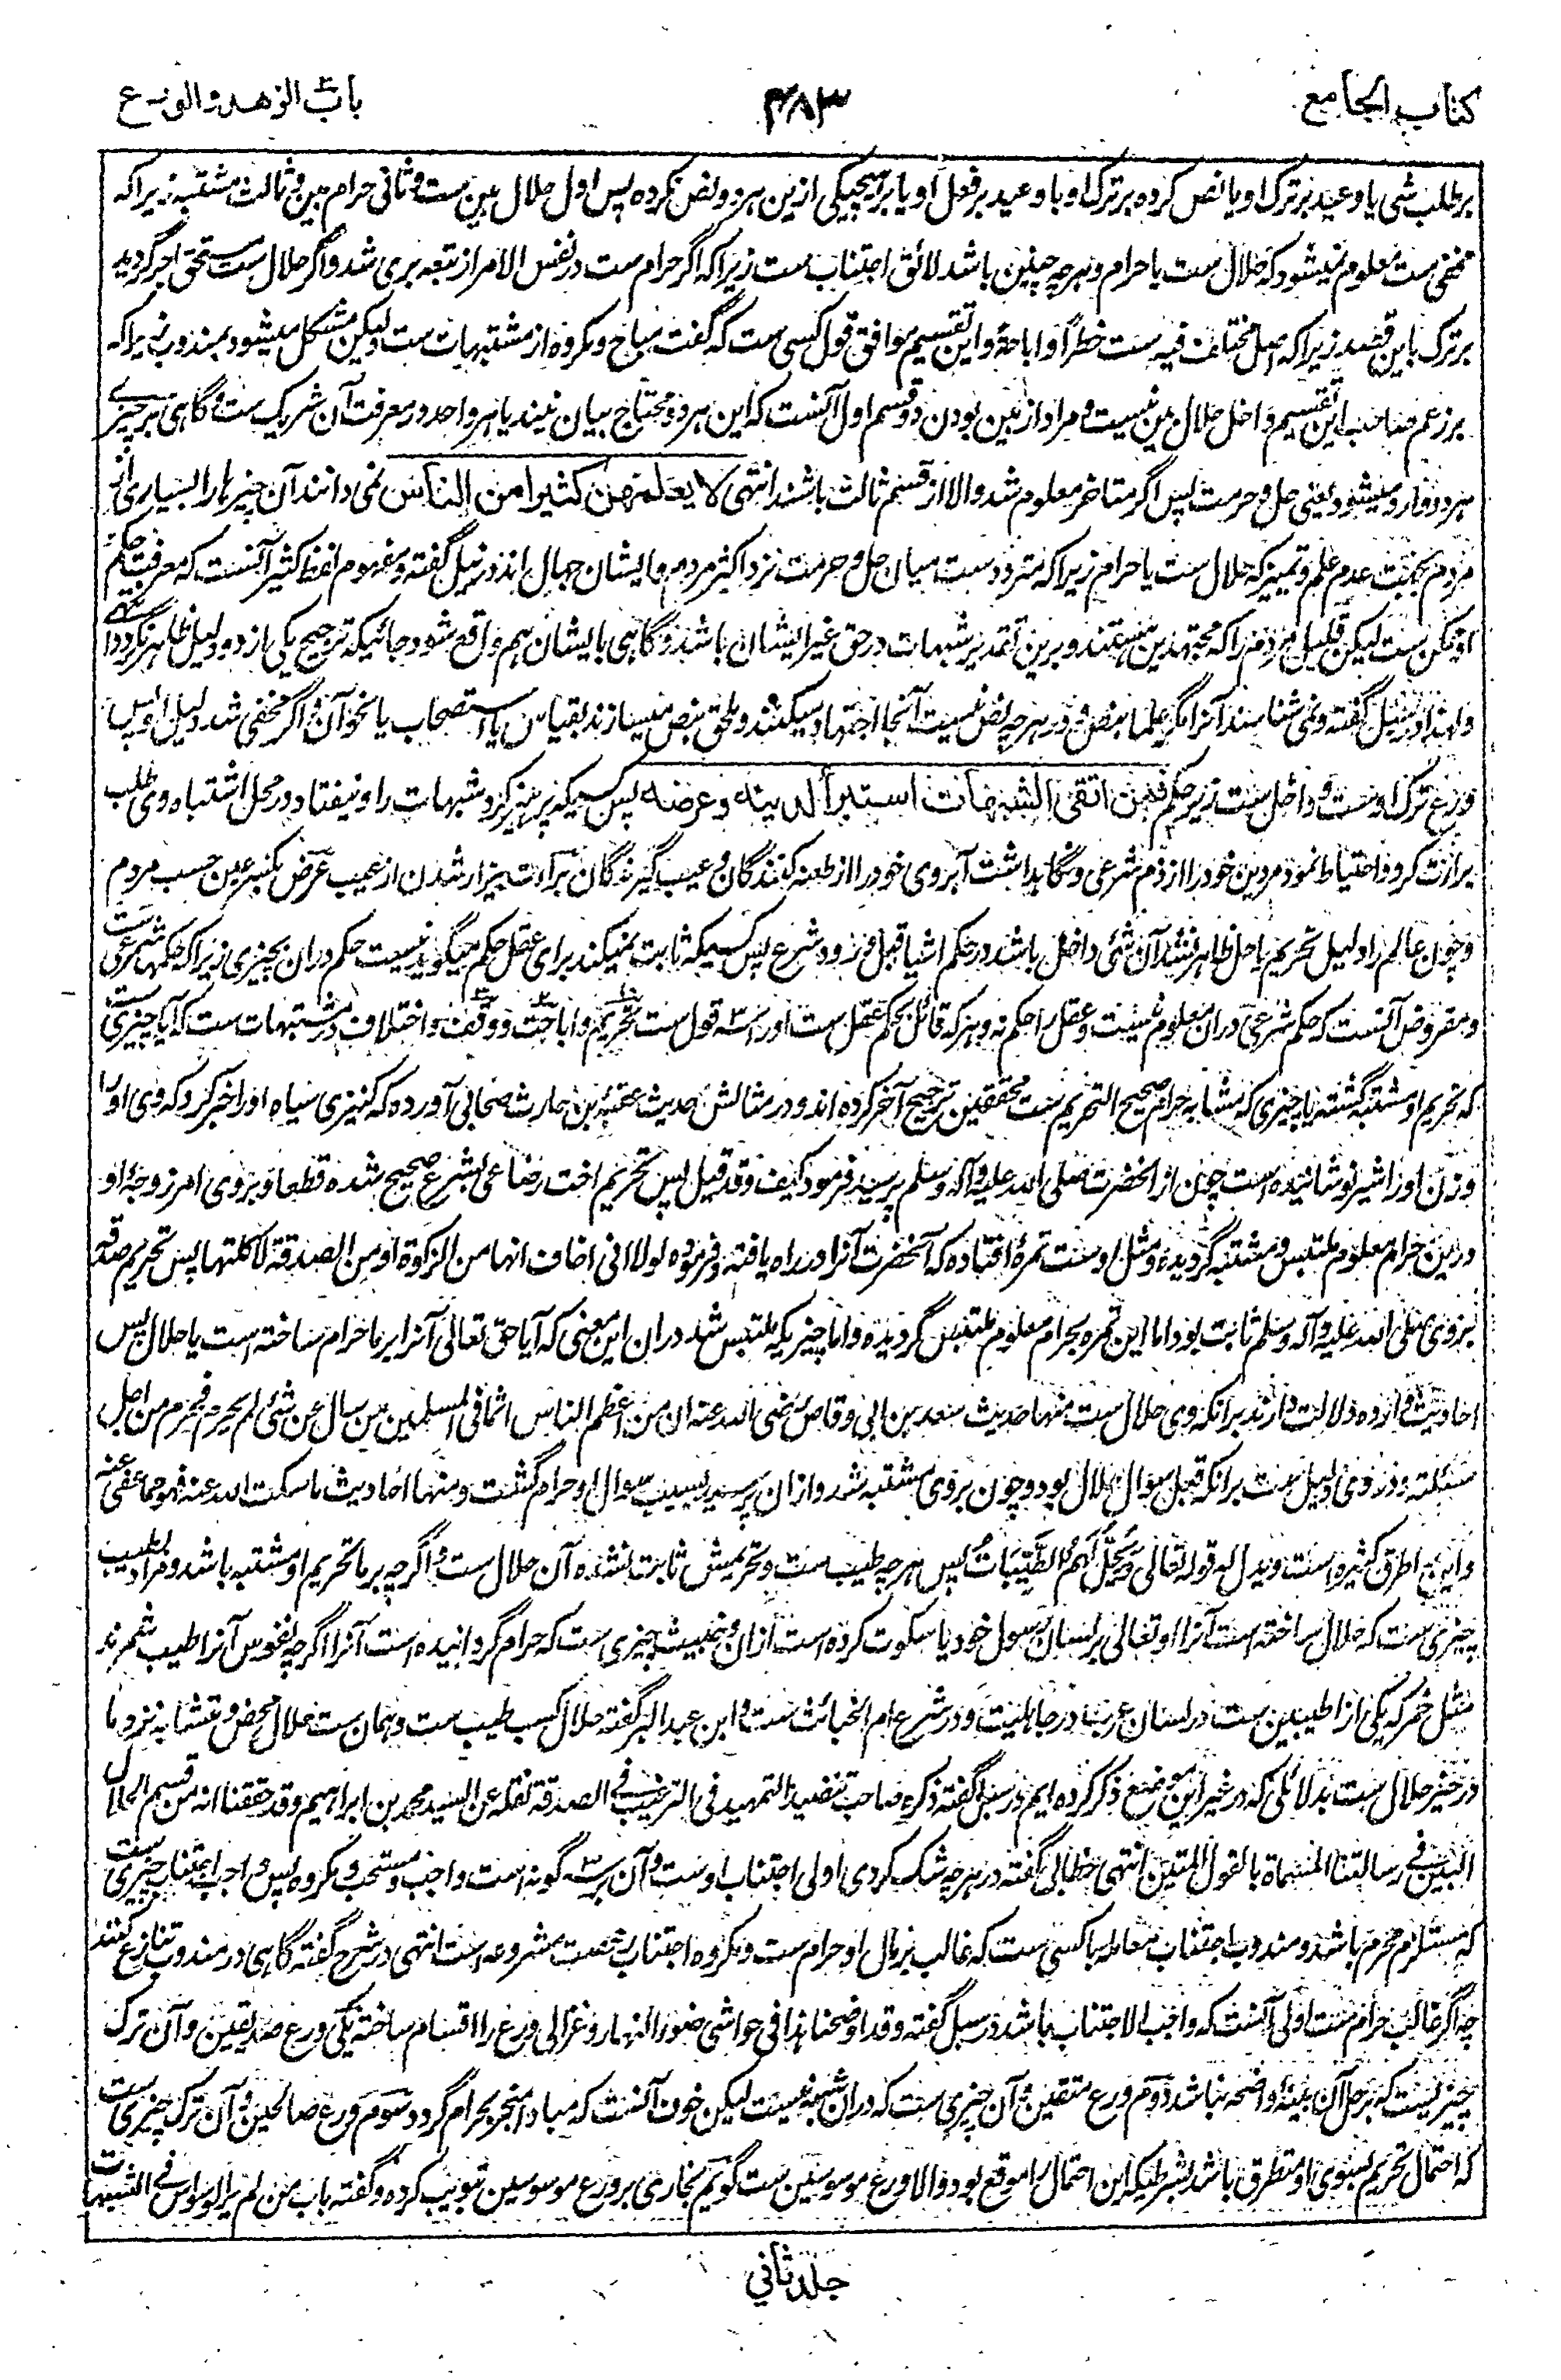 کتاب الجامع
۴۸۳
باب الزهد والورع
بر طلب شی یا وعید بر ترک او یا نص کرده بر ترک او با وعید بر فعل او یا بر هیچیکی ازین هر دو نص نکرده پس اول حلال بین ست و ثانی حرام بین و ثالث مشتبه زیرا که
مخفی ست معلوم نمیشود که حلال ست یا حرام و هر چه چنین باشد لائق اجتناب ست زیرا که اگر حرام ست در نفس الامر از تبعه بری شد و اگر حلال ست مستحق اجر گردید
بر ترک باین قصد زیرا که اصل مختلف فیه ست خطراً و اباحةً و این تقسیم موافق قول کسی ست که گفت مباح و مکروه از مشتبهات ست ولیکن مشکل میشود بمندوب زیرا که
بر زعم صاحب این تقسیم داخل حلال بین نیست و مراد از بین بودن دو قسم اول آنست که این هر دو محتاج بیان نیند یا هر واحد در معرفت آن شریک ست و گاهی بر چیزے
هر دو وارد میشود یعنی حل و حرمت پس اگر متاخر معلوم شد والا از قسم ثالث باشد انتهی لا یعلمهن کثیرا من الناس نمی دانند آن چیزها را بسیاری از
مردم بجهت عدم علم و تمییز که حلال ست یا حرام زیرا که متردد ست میان حل و حرمت نزد اکثر مردم و ایشان جهال اند در نیل گفته و مفهوم لفظ کثیر آنست که معرفت حکم
او ممکن ست لیکن قلیل مردم را که مجتهدین هستند و برین تقدیر شبهات در حق غیر ایشان باشد و گاهی بایشان هم واقع شود جائیکه ترجیح یکی از دو دلیل ظاهر نگردد انتهے
ولهذا در سبل گفته و نمی شناسند آنرا مگر علما بنص و در هر چه نص نیست آنجا اجتهاد میکنند و ملحق بنص میسازند بقیاس یا استصحاب یا نحو آن و اگر مخفی شد دلیل او پس
ورع ترک اوست و داخل ست زیر حکم فمن اتقی الشبهات استبرأ لدینه و عرضه پس کسیکه پرهیز کرد شبهات را و نیفتاد در محل اشتباه وی طلب
برارت کرد و احتیاط نمود مر دین خود را از ذم شرعی و نگاهداشت آبروی خود را از طعنه کنندگان و عیب گیرندگان برآءت بیزار شدن از عیب عرض بکسر عین حسب مردم
و چون عالم را دلیل تحریم یا حل ظاهر نشد آن شئی داخل باشد در حکم اشیا قبل ورود شرع پس کسیکه ثابت نمیکند برای عقل حکم میگوید نیست حکم دران بچیزی زیرا که حکمها شرعی ست
و مفروض آنست که حکم شرعی دران معلوم نیست و عقل را حکم نه و هر که قائل بحکم عقل ست او را سه قول ست تحریم و اباحت و وقف و اختلاف در مشتبهات ست که آیا چیزی ست
که تحریم او مشتبه گشته یا چیزی که مشابه حرام صحیح التحریم ست محققین ترجیح آخر کرده اند و در مثالش حدیث عقبه بن حارث صحابی آورده که کنیزی سیاه او را خبر کرد که وی او را
و زن او را شیر نوشانیده است چون از آنحضرت صلی الله علیه وآله وسلم پرسید فرمود کیف وقد قیل پس تحریم اخت رضاعی بشرع صحیح شده قطعا و بر وی امر زوجه او
درین حرام معلوم ملتبس و مشتبه گردیده و مثل اوست تمرهٔ افتاده که آنحضرت آنرا در راه یافته و فرموده لولا انی اخاف انها من الزکوة او من الصدقة لاکلتها پس تحریم صدقه
بروی صلی الله علیه وآله وسلم ثابت بود اما این تمره بحرام معلوم ملتبس گردیده و اما چیزیکه ملتبس شد دران این معنی که آیا حق تعالی آنرا بر ما حرام ساخته است یا حلال پس
احادیث وارده دلالت دارند برآنکه وی حلال ست منها حدیث سعد بن ابی وقاص رضی الله عنه ان من اعظم الناس اثما فی المسلمین من سأل عن شئ لم یحرم فحرم من اجل
مسئلته و در وی دلیل ست برانکه قبل سوال حلال بود و چون بر وی مشتبه شد و ازان پرسید بسبب سوال او حرام گشت و منها احادیث ما سکت الله عنه فهو مما عفی عنه
و این را طرق کثیره است و یدل له قوله تعالی وَیُحِلُّ لَهُمُ الطَّیِّبَاتُ پس هر چه طیب ست و تحریمش ثابت نشده آن حلال ست و اگر چه بر ما تحریم او مشتبه باشد و مراد بطیب
چیزی ست که حلال ساخته است آنرا او تعالی بر لسان رسول خود یا سکوت کرده است ازان و خبیث چیزی ست که حرام گردانیده است آنرا اگر چه نفوس آنرا طیب شمرند
مثل خمر که یکی از اطیبین ست در لسان عرب در جاهلیت و در شرع ام الخبائث ست و ابن عبد البر گفته حلال کسب طیب ست و همان ست حلال محض و متشابه نزد ما
در حیز حلال ست بدلائلی که در غیر این موضع ذکر کرده ایم در سبل گفته ذکره صاحب تنضید التمهید فی الترغیب فی الصدقة نقله عن السید محمد بن ابراهیم و قد حققنا انه من قسم الحلال
البین فی رسالتنا المسماة بالقول المتین انتهی خطابی گفته در هر چه شک کردی اولی اجتناب اوست و آن بر سه گونه است واجب و مستحب و مکروه پس واجب اجتناب چیزی ست
که مستلزم محرم باشد و مندوب اجتناب معامله با کسی ست که غالب بر مال او حرام ست و مکروه اجتناب رخصت مشروعه است انتهی در شرح گفته گاهی در مندوب تنازع کنند
چه اگر غالب حرام ست اولی آنست که واجب الاجتناب باشد در سبل گفته و قد اوضحنا هذا فی حواشی ضوء النهار و غزالی ورع را اقسام ساخته یکی ورع صدیقین و آن ترک
چیزیست که بر حل آن بینهٔ واضحه نباشد دوم ورع متقین و آن چیزی ست که دران شبه نیست لیکن خوف آنست که مبادا منجر بحرام گردد سوم ورع صالحین و آن ترک چیزی ست
که احتمال تحریم بسوی او متطرق باشد بشرطیکه این احتمال را موقع بود والا ورع موسوسین ست گویم بخاری بر ورع موسوسین تبویب کرده و گفته باب من لم یر الوساوس فی الشبهات
جلد ثانی